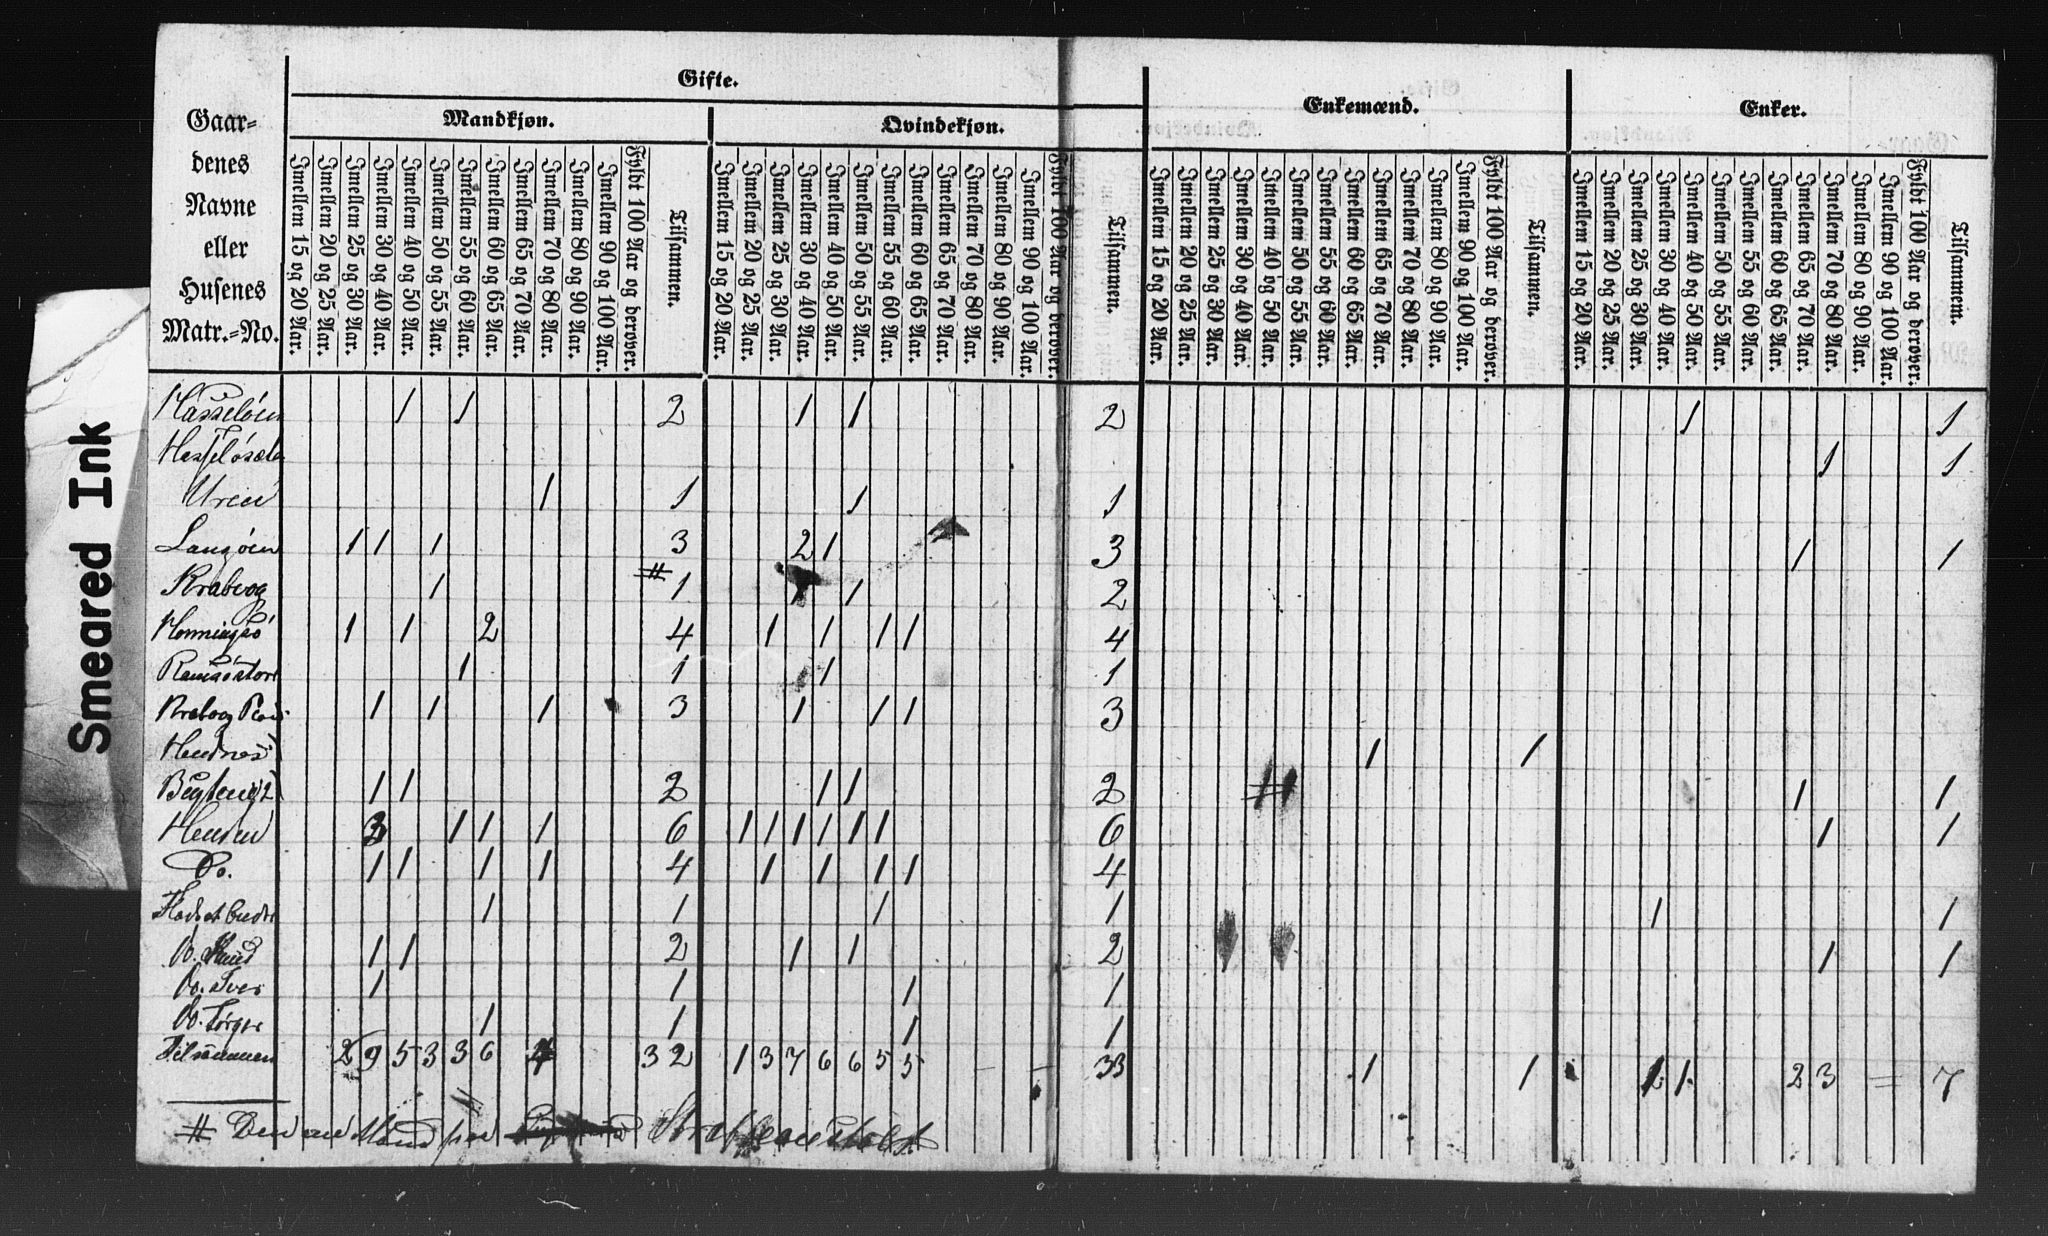 Smeared Ink
Gaar=
denes
Navne
eller
Husenes
Matr.=No.
Gifte.
Mandkjøn.
Imellem 15 og 20 Aar.
Imellem 20 og 25 Aar.
Imellem 25 og 30 Aar.
Imellem 30 og 40 Aar.
Imellem 40 og 50 Aar.
Imellem 50 og 55 Aar.
Imellem 55 og 60 Aar.
Imellem 60 og 65 Aar.
Imellem 65 og 70 Aar.
Imellem 70 og 80 Aar.
Imellem 80 og 90 Aar.
Imellem 90 og 100 Aar.
Fyldt 100 Aar og derover.
Tilsammen.
Qvindekjøn.
Imellem 15 og 20 Aar.
Imellem 20 og 25 Aar.
Imellem 25 og 30 Aar.
Imellem 30 og 40 Aar.
Imellem 40 og 50 Aar.
Imellem 50 og 55 Aar.
Imellem 55 og 60 Aar.
Imellem 60 og 65 Aar.
Imellem 65 og 70 Aar.
Imellem 70 og 80 Aar.
Imellem 80 og 90 Aar.
Imellem 90 og 100 Aar.
Fyldt 100 Aar og derover.
Tilsammen.
Enkemænd.
Imellem 15 og 20 Aar.
Imellem 20 og 25 Aar.
Imellem 25 og 30 Aar.
Imellem 30 og 40 Aar.
Imellem 40 og 50 Aar.
Imellem 50 og 55 Aar.
Imellem 55 og 60 Aar.
Imellem 60 og 65 Aar.
Imellem 65 og 70 Aar.
Imellem 70 og 80 Aar.
Imellem 80 og 90 Aar.
Imellem 90 og 100 Aar.
Fyldt 100 Aar og derover.
Tilsammen.
Enker.
Imellem 15 og 20 Aar.
Imellem 20 og 25 Aar.
Imellem 25 og 30 Aar.
Imellem 30 og 40 Aar.
Imellem 40 og 50 Aar.
Imellem 50 og 55 Aar.
Imellem 55 og 60 Aar.
Imellem 60 og 65 Aar.
Imellem 65 og 70 Aar.
Imellem 70 og 80 Aar.
Imellem 80 og 90 Aar.
Imellem 90 og 100 Aar.
Fyldt 100 Aar og derover.
Tilsammem.
Hasseløen 1 1 2 1 1 2 1 1
1 1
1 1 1 1
Langøen 1 1 1 3 2 1 3 1 1
Krabvog 1 # 1 1 1 2
Honningsø 1 1 2 4 1 1 1 1 4
1 1 1 1
Krabvog 1 1 1 3 1 1 1 3
Hendnes 1 1
1 1 2 1 1 2 1 1
3 1 1 1 6 1 1 1 1 1 1 6 1 1
Do. 1 1 1 1 4 1 1 1 1 4
1 1 1 1 1 1
Do. Knud 1 1 2 1 1 2 1 1
Do. Iver 1 1 1 1
Do. Jørgen 1 1 1 1
Tilsammen 2 9 5 3 3 6 4 32 1 3 7 6 6 5 5 33 1 1 1 1 2 3 7
# Den ene Mand paa Strafanstalt